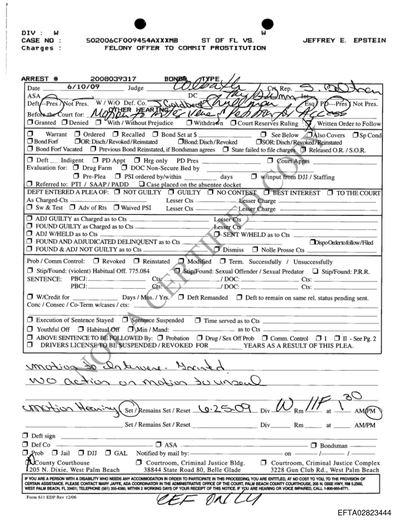 DIV : W W
CASE NO : 502006CF009454AXXXMB ST OF FL VS. JEFFREY E. EPSTEIN
Charges : FELONY OFFER TO COMMIT PROSTITUTION
ARREST # 2008039317 BOND$ TYPE
Date 6/10/09 Judge Colbath Ct Rep.
ASA DC
Deft—Pres/Not Pres. W / W/O Def. Co. PD—Pres / Not Pres.
OTHER HEARING
Before Court for: Motion to Intervene Petition for Access
Granted Denied With / Without Prejudice Withdrawn Court Reserves Ruling Written Order to Follow
Warrant Ordered Recalled Bond Set at $ See Below Also Covers Sp Cond
Bond Forf OR: Disch/Revoked/Reinstated Bond: Disch/Revoked SOR: Disch/Revoked/Reinstated
Bond Forf Vacated Previous Bond Reinstated, if Bondsman agrees State failed to file charges Released O.R. / S.O.R.
Deft — Indigent PD Appt Hrg only PD Pres Court Appts
Evaluation for: Drug Farm DOC Non-Secure Bed by
Pre-Plea PSI ordered by/within days w/input from DJJ / Staffing
Referred to: PTI / SAAP / PADD Case placed on the absentee docket
DEFT ENTERED A PLEA OF: NOT GUILTY GUILTY NO CONTEST BEST INTEREST TO THE COURT
As Charged-Cts Lesser Cts Lesser Charge
Sw & Test Adv of Rts Waived PSI Lesser Cts Lesser Charge
ADJ GUILTY as Charged as to Cts Lesser Cts
FOUND GUILTY as Charged as to Cts Lesser Cts
ADJ W/HELD as to Cts SENT W/HELD as to Cts
FOUND AND ADJUDICATED DELINQUENT as to Cts Dispo Orders to follow/Filed
FOUND & ADJ NOT GUILTY as to Cts Dismiss Nolle Prosse Cts
Prob / Comm Control: Revoked Reinstated Modified Term. Successfully / Unsuccessfully
Stip/Found: (violent) Habitual Off. 775.084 Stip/Found: Sexual Offender / Sexual Predator Stip/Found: P.R.R.
SENTENCE: PBCJ: /DOC: Cts:
PBCJ: Cts: /DOC: Cts:
W/Credit for Days / Mos. / Yrs. Deft Remanded Deft to remain on same rel. status pending sent.
Conc / Consec / Co-Term w/cases / cts:
Execution of Sentence Stayed Sentence Suspended Time served as to Cts
Youthful Off Habitual Off Min / Mand: as to Cts
ABOVE SENTENCE TO BE FOLLOWED BY: Probation Drug / Sex Off Prob Comm. Control I II - See Pg. 2
DRIVERS LICENSE TO BE SUSPENDED / REVOKED FOR YEARS AS A RESULT OF THIS PLEA.
NOT A CERTIFIED COPY
motion to Intervene - Granted
no action on motion to unseal
motion Hearing Set / Remains Set / Reset 6-25-09 Div W 11F at 1:30 AM/PM
Set / Remains Set / Reset Div at AM/PM
Deft sign
Def Co ASA Bondsman
Prob Jail DJJ GAL Notified by mail by: on / /
County Courthouse Courtroom, Criminal Justice Bldg. Courtroom, Criminal Justice Complex
205 N. Dixie, West Palm Beach 38844 State Road 80, Belle Glade 3228 Gun Club Rd., West Palm Beach
Form 611 EDP Rev 12/06
CCF ONLY
EFTA02823444